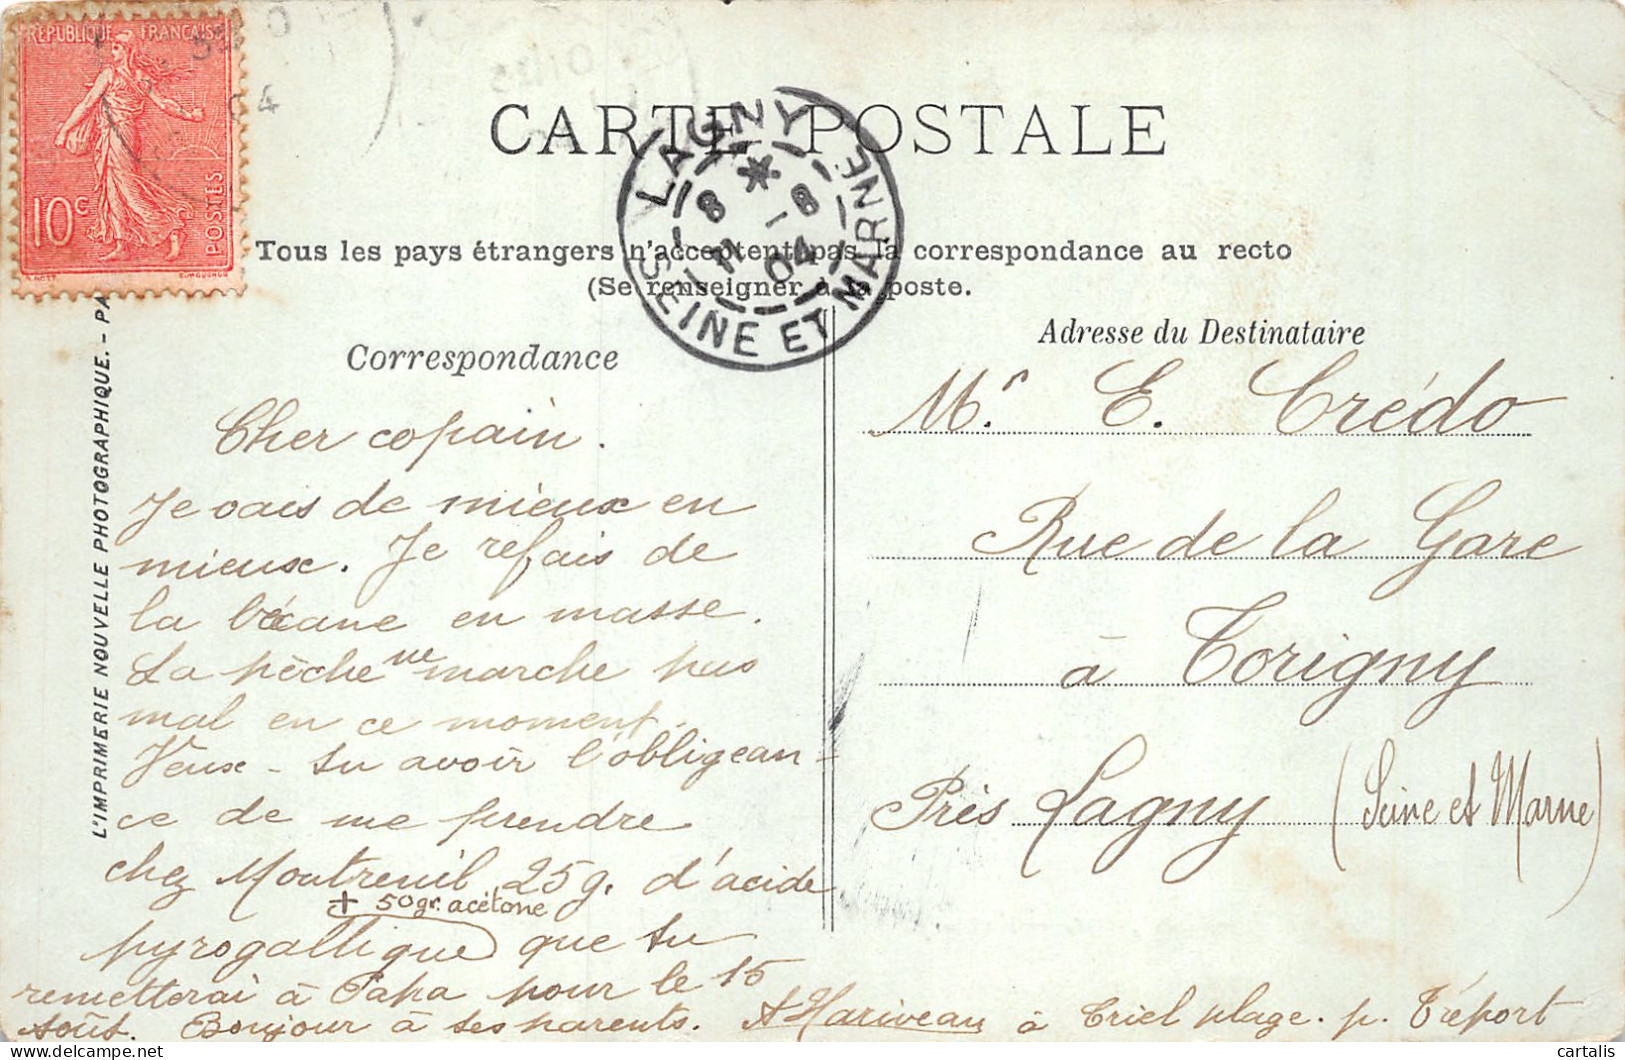 RÉPUBLIQUE FRANÇAISE
10c
POSTES
04
CARTE POSTALE
LAGNY
8 * 8
11 - 8
04
SEINE ET MARNE
Tous les pays étrangers n'acceptent pas la correspondance au recto
(Se renseigner à la poste.
Correspondance
Adresse du Destinataire
L'IMPRIMERIE NOUVELLE PHOTOGRAPHIQUE. - PA
Cher copain.
Je vais de mieux en
mieux. Je refais de
la bécane en masse.
La pêche ne marche pas
mal en ce moment.
Veux-tu avoir l'obligean-
ce de me prendre
chez Montreuil 25g. d'acide
+ 50gr. acétone
pyrogallique que tu
remetterai à Papa pour le 15
août. Bonjour à tes parents. A Hariveau à Criel plage. p. Tréport
Mr. E. Crédo
Rue de la Gare
à Torigny
Près Lagny (Seine et Marne)
cartalis